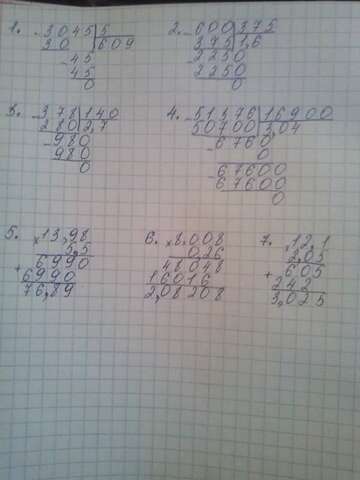 1. -3045|5
30 |609
-45
45
0
2. -600|375
375|1,6
-2250
2250
0
3. -378|140
280|2,7
-980
980
0
4. -51376|16900
50700|3,04
-6760
0
-67600
67600
0
5. ×13,98
5,5
+6990
6990
76,89
6. ×8,008
0,26
48048
16016
2,08208
7. ×12,1
2,05
+605
242
3,025